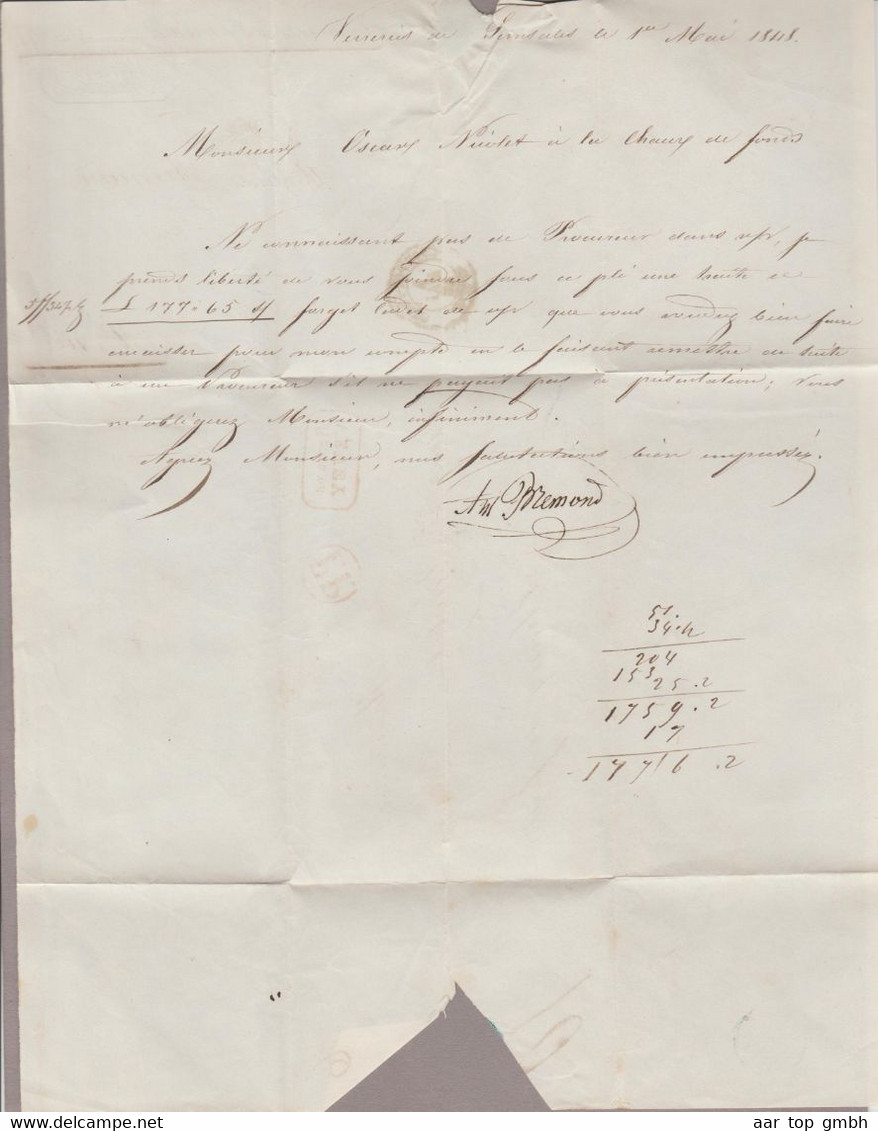 Verrerie de Semsales le 1er Mai 1848.
Monsieur Oscar Nicolet à la Chaux de fonds
Ne connaissant pas de Procureur dans v/v, je
prends liberté de vous joindre sous ce pli une traite de
£ 177.65 s/ forget de v/v que vous voudrez bien faire
encaisser pour mon compte en le faisant remettre de suite
à un Procureur s'il ne payait pas à présentation; vous
m'obligerez Monsieur, infiniment.
Agréez Monsieur, mes salutations bien empressées.
Am Bremond
51.
34.
204
153
25.2
1759.2
17
1776.2
aar top gmbh